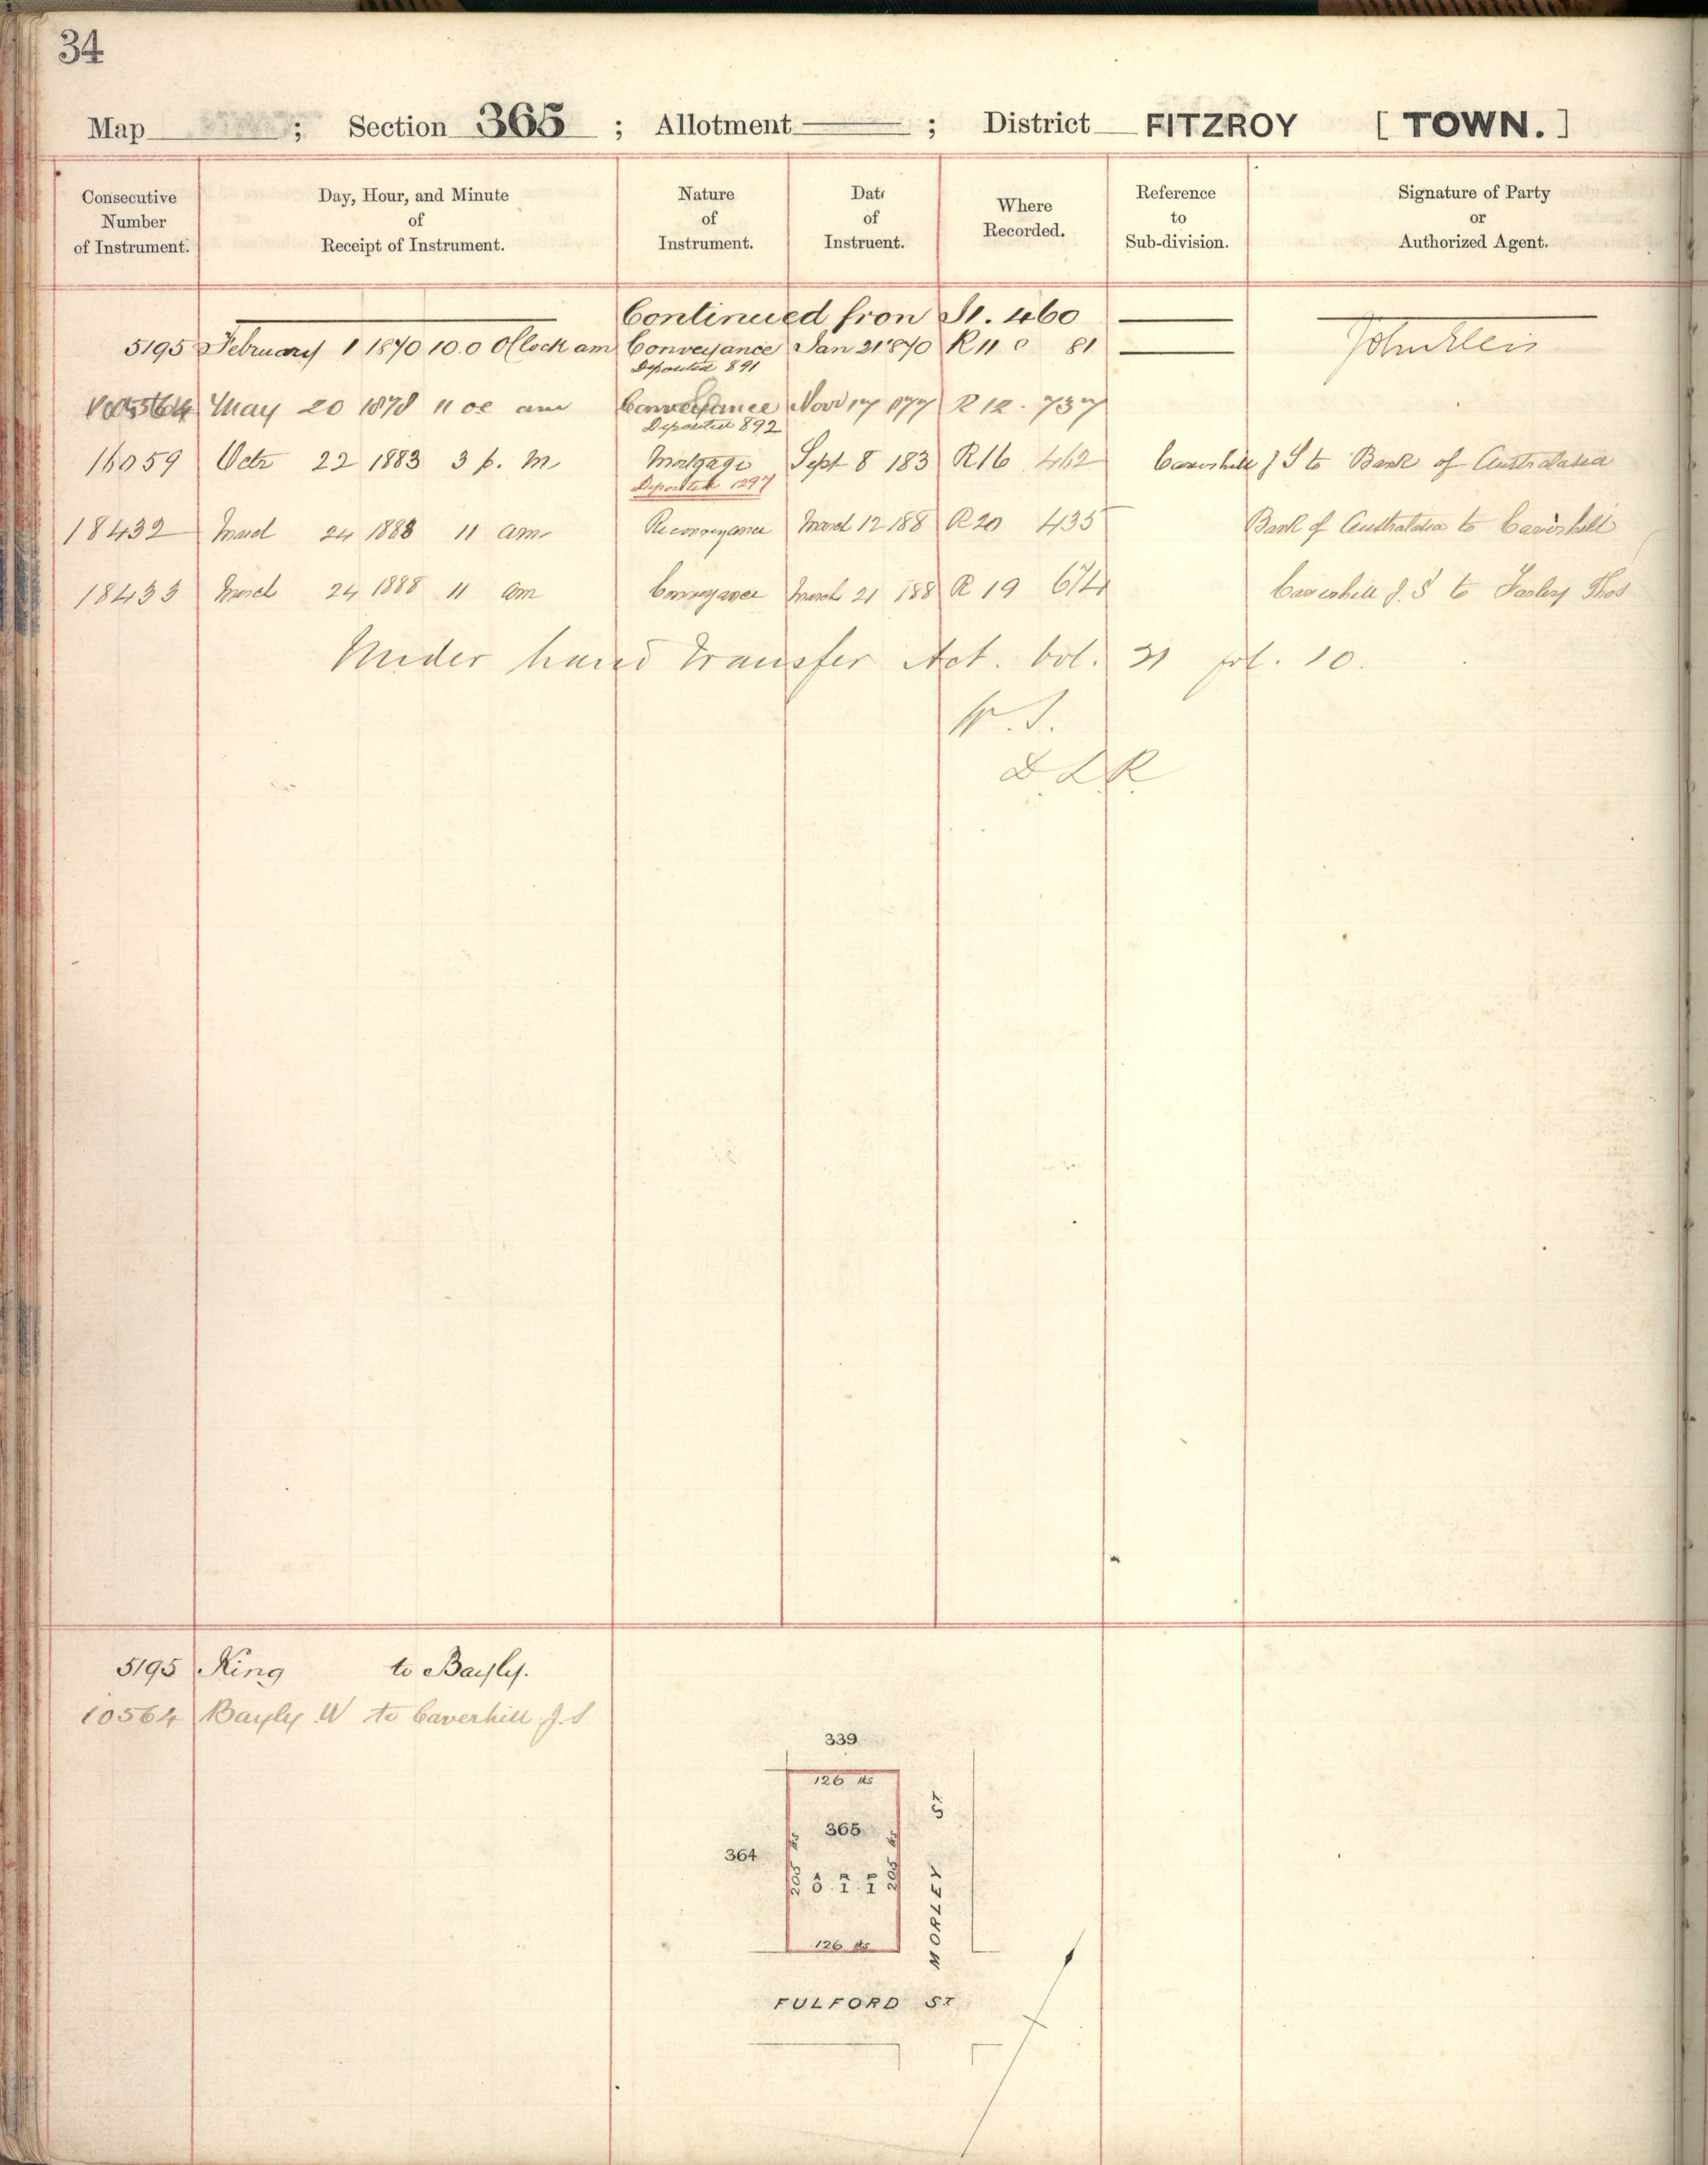 34
Map ; Section 365 ; Allotment ——— ; District FITZROY [ TOWN. ]
Consecutive Number of Instrument.
Day, Hour, and Minute of Receipt of Instrument.
Nature of Instrument.
Date of Instruent.
Where Recorded.
Reference to Sub-division.
Signature of Party or Authorized Agent.
Continued from 460
5195 February 1 1870 10.0 O Clock am Conveyance Jan 21 870 R11 81
Deposited 891
May 20 1878 11 oc am Conveyance Novr 17 877 R 12. 737
Deposited 892
16059 Octr 22 1883 3 p. m. Mortgage Sept 8 183 R16 462 Caverhill J S to Bank of Australasia
Deposited 1297
18432 March 24 1888 11 am Reconveyance March 12 188 R20 435 Bank of Australasia to Caverhill
18433 March 24 1888 11 am Conveyance March 21 188 R 19 674 Caverhill J. S to Thos
Under Land Transfer Act. Vol. 21 fol. 10.
D. L. R.
5195 King to Bayly.
10564 Bayly W to Caverhill J. S
339
126 lks
365
364
205 lks
205 lks
126 lks
MORLEY ST
FULFORD ST